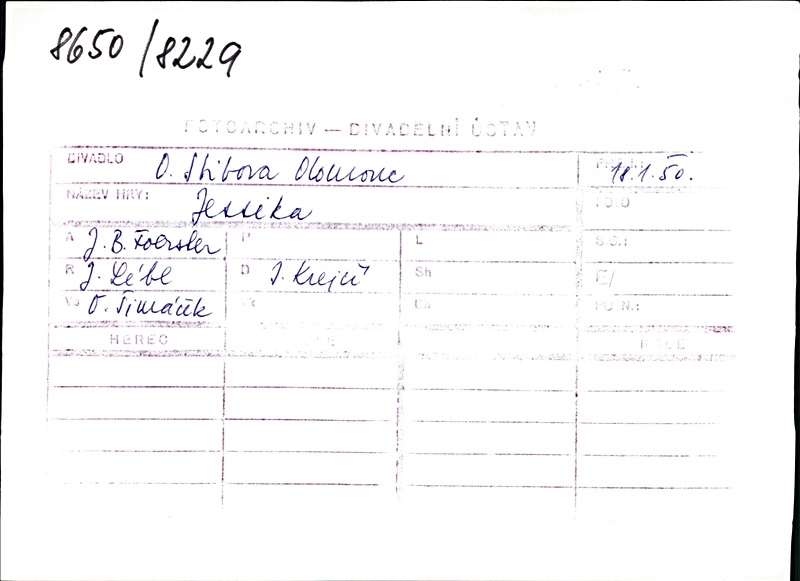 8650/8229
FOTOARCHIV — DIVADELNÍ ÚSTAV
DIVADLO O. Stibora Olomouc 18.1.50.
NÁZEV HRY: Jessika FOTO
A J. B. Foerster P L S C.:
R J. Lébl D I. Krejčí Sh E/
Vs O. Šimáček PO N.:
HEREC ROLE